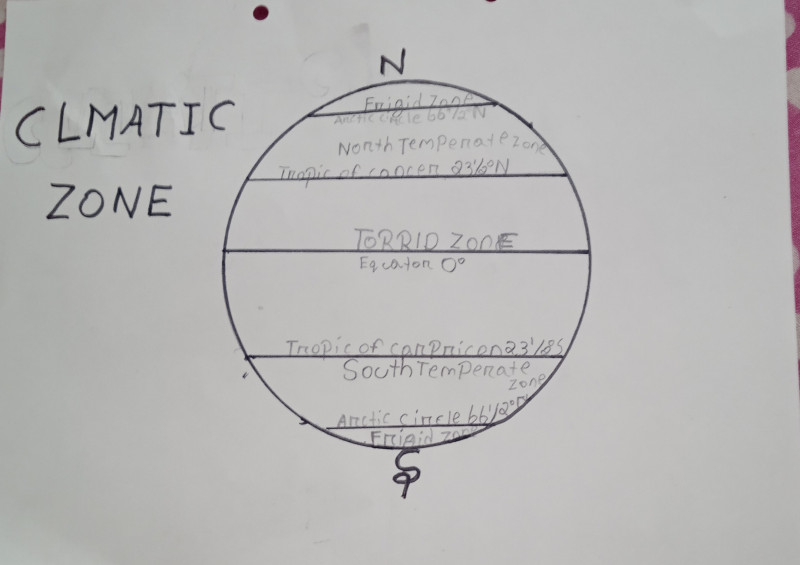 N
CLMATIC
ZONE
Frigid Zone
Arctic circle 66 1/2°N
North Temperate zone
Tropic of cancer 23½°N
ToRRID ZONE
Equator 0°
Tropic of carpricon 23 1/8S
South Temperate
zone
Arctic circle 66 1/2°N
Frigid zone
S